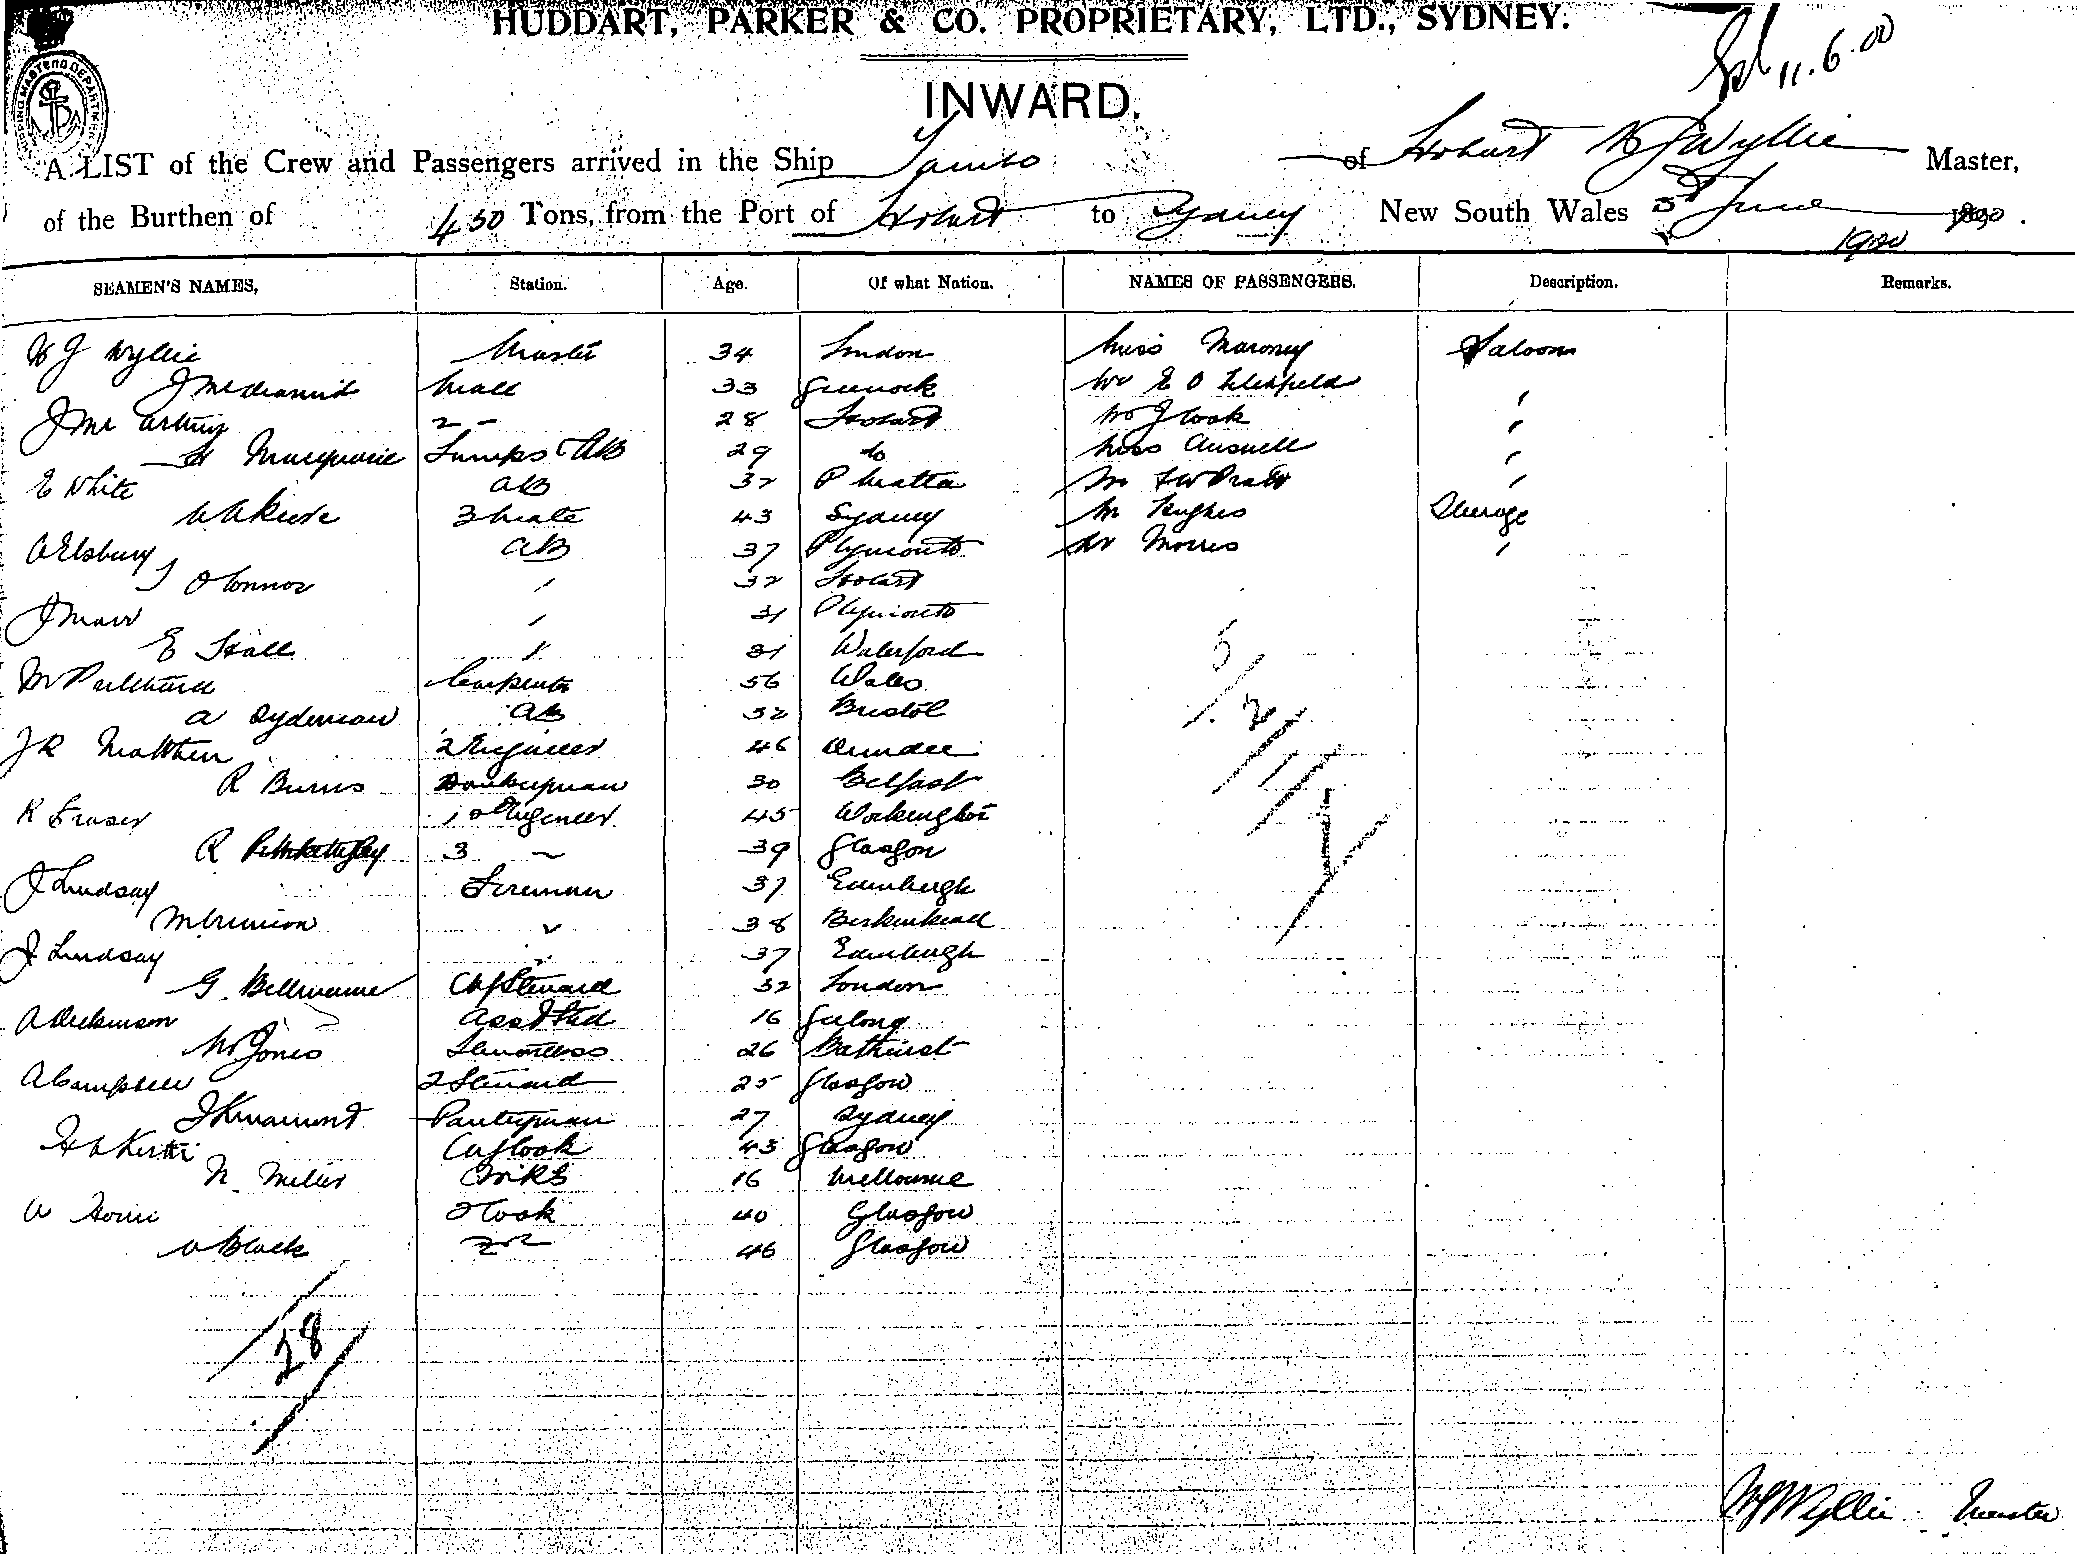 HUDDART, PARKER & CO. PROPRIETARY, LTD., SYDNEY.
11.6.00
INWARD.
A LIST of the Crew and Passengers arrived in the Ship Tambo of Hobart W J Wyllie Master,
of the Burthen of 450 Tons, from the Port of Hobart to Sydney New South Wales 3rd June 1890.
1900
SEAMEN'S NAMES, Station. Age. Of what Nation. NAMES OF PASSENGERS. Description. Remarks.
W J Wyllie Master 34 London Miss Maroney Saloon
J McDiarmid Mate 33 Greenock Mr E O "
J McArthy 2 - 28 Hobart W J Cook "
H Macquarie Lamps & AB 29 do Miss "
E White AB 32 P Matta Mr F W Pratt "
3 Mate 43 Sydney Mr Hughes Steerage
A Elsbury AB 37 Plymouth Mr Morris "
J O'Connor " 32 Hobart
J Marr " 31 Plymouth
E Hall " 31 Waterford
W Pritchard Carpenter 56 Wales
A Sydenman AB 32 Bristol
J R Matthew 2 Engineer 46 Dundee
R Burns Donkeyman 30 Belfast
R Fraser 1st Engineer 45 Workington
R 3 " 39 Glasgow
J Lindsay Fireman 37 Edinburgh
" 38 Birkenhead
J Lindsay " 37 Edinburgh
G. Bellmaine Ch Steward 32 London
A Dickinson Asst Std 16 Geelong
M Jones Stewardess 26 Bathurst
A Campbell 2 Steward 25 Glasgow
Pantryman 27 Sydney
Ch Cook 43 Glasgow
N. Miller 16 Melbourne
A Horne 2 Cook 40 Glasgow
A Black 46 Glasgow
5/2/
28
W J Wyllie Master